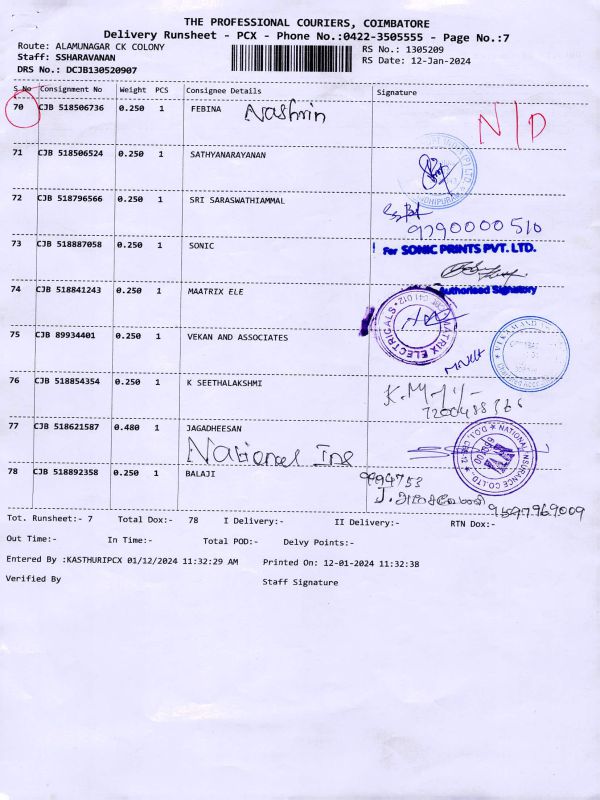 THE PROFESSIONAL COURIERS, COIMBATORE
Delivery Runsheet - PCX - Phone No.:0422-3505555 - Page No.:7
Route: ALAMUNAGAR CK COLONY
RS No.: 1305209
Staff: SSHARAVANAN
RS Date: 12-Jan-2024
DRS No.: DCJB130520907
S No Consignment No Weight PCS Consignee Details Signature
70 CJB 518506736 0.250 1 FEBINA Nashrin N/D
71 CJB 518506524 0.250 1 SATHYANARAYANAN
72 CJB 518796566 0.250 1 SRI SARASWATHIAMMAL
9790000510
73 CJB 518887058 0.250 1 SONIC For SONIC PRINTS PVT. LTD.
Authorised Signatory
74 CJB 518841243 0.250 1 MAATRIX ELE
MATRIX ELECTRICALS
75 CJB 89934401 0.250 1 VEKAN AND ASSOCIATES
76 CJB 518854354 0.250 1 K SEETHALAKSHMI
77 CJB 518621587 0.480 1 JAGADHEESAN
National Ins
NATIONAL INSURANCE CO.LTD.
78 CJB 518892358 0.250 1 BALAJI 9994753
9597969009
Tot. Runsheet:- 7 Total Dox:- 78 I Delivery:- II Delivery:- RTN Dox:-
Out Time:- In Time:- Total POD:- Delvy Points:-
Entered By :KASTHURIPCX 01/12/2024 11:32:29 AM Printed On: 12-01-2024 11:32:38
Verified By Staff Signature